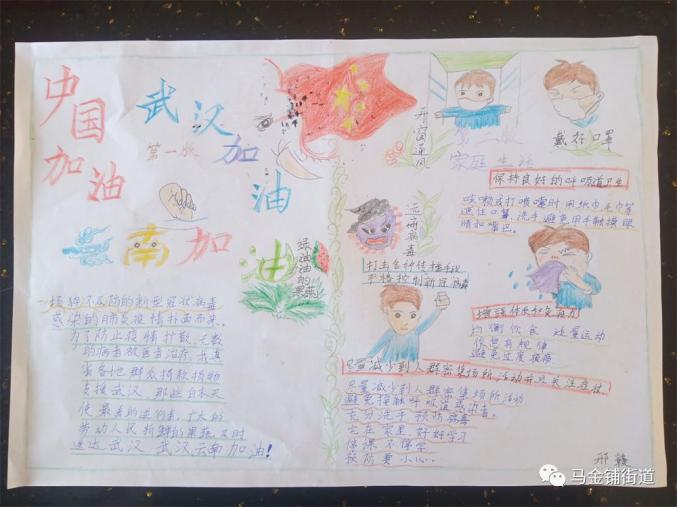 中国
加油
武汉
第一版
加
油
云南加油
绿油油的果蔬
措手不及防的新型冠状病毒
感染的肺炎疫情扑面而来。
为了防止疫情扩散，无数
的病者被医者治疗，我真
省各地群众捐款捐物
支援武汉，那些白衣天
使最美的逆行者，广大的
劳动人民新鲜的果蔬及时
送达武汉 武汉云南加油！
开窗通风
第二版
家庭生活
戴好口罩
保持良好的呼吸道卫生
咳嗽或打喷嚏时用纸巾毛巾等
遮住口鼻，洗手避免用手触摸眼
睛和嘴巴。
远离病毒
打击各种传播手段
严格控制新冠病毒
增强体质和免疫力
均衡饮食 适量运动
作息有规律
避免过度疲劳
尽量减少到人群密集场所活动
尽量减少到人群密集场所活动
避免接触呼吸道感染者。
充分洗手 预防病毒
宅在家里好好学习
停课不停学
预防要小心。
邢赣
马金铺街道